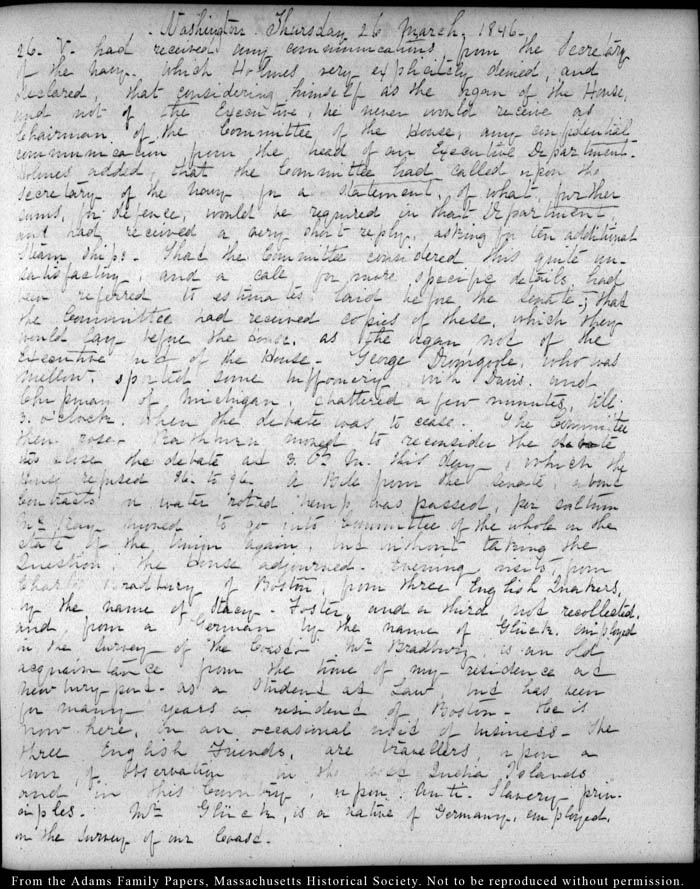 Washington Thursday 26 March, 1846.
26. V. had received any communications, from the Secretary
of the navy. which Holmes very explicitly denied, and
declared, that considering himself as the organ of the House,
and not of the Executive, he never would receive as
Chairman of the Committee of the House, any confidential
communication from the head of an Executive Department.
Holmes added, that the Committee had called upon the
Secretary of the navy for a statement, of what, further
sums, for defence, would be required in that Department,
and had received a very short reply, asking for ten additional
Steam Ships. That the Committee considered this quite un-
satisfactory, and a call for more, specific details, had
been referred to estimates laid before the Senate; that
the Committee had received copies of these, which they
would lay before the House, as the organ not of the
Executive but of the House. George Dromgoole, who was
mellow, sported some buffoonery with Davis. and
Chipman of Michigan, chattered a few minutes, till
3. o'clock. when the debate was to cease. The Committee
then rose. Rathbun moved to reconsider the
to close the debate at 3. P. M. this day, which the
House refused 86. to 96. A Bill from the Senate, about
Contracts on water rotted hemp was passed, per saltum
Mr Kay moved to go into Committee of the whole on the
state of the Union again, but without taking the
Question, the House adjourned. Evening, visits, from
Charles Bradbury of Boston, from three English Quakers,
by the name of Stacy. Foster, and a third not recollected.
and from a German by the name of Glück. employed
in the Survey of the Coast. Mr Bradbury, is an old
acquaintance from the time of my residence at
Newburyport. as a Student at Law, but has been
for many years a resident of Boston. He is
now here, on an occasional visit of business. The
three English Friends, are travellers, upon a
tour, of observation in the West India Islands
and in this Country, upon Anti Slavery prin-
ciples. Mr Glück, is a native of Germany, employed,
in the Survey of our Coast.
From the Adams Family Papers, Massachusetts Historical Society. Not to be reproduced without permission.